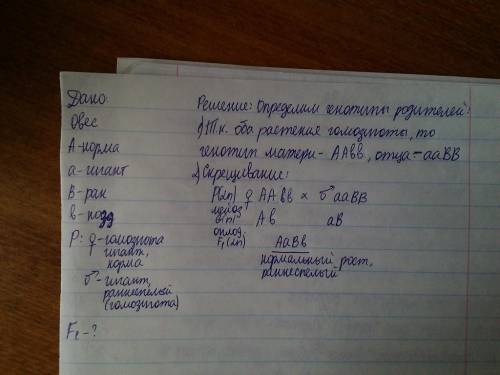 Дано:
Овес
А-норма
а-гигант
В-ран
в-позд
Р: ♀-гомозигота
гигант,
норма
♂-гигант,
раннеспелый
(гомозигота)
F₁-?
Решение: Определим генотипы родителей:
1) Т.к. оба растения гомозиготы, то
генотип матери- ААвв, отца- ааВВ
2) Скрещивание:
Р(2n) ♀ ААвв × ♂ ааВВ
мейоз
G(n) Ав аВ
оплод.
F₁(2n) АаВв
нормальный рост,
раннеспелый